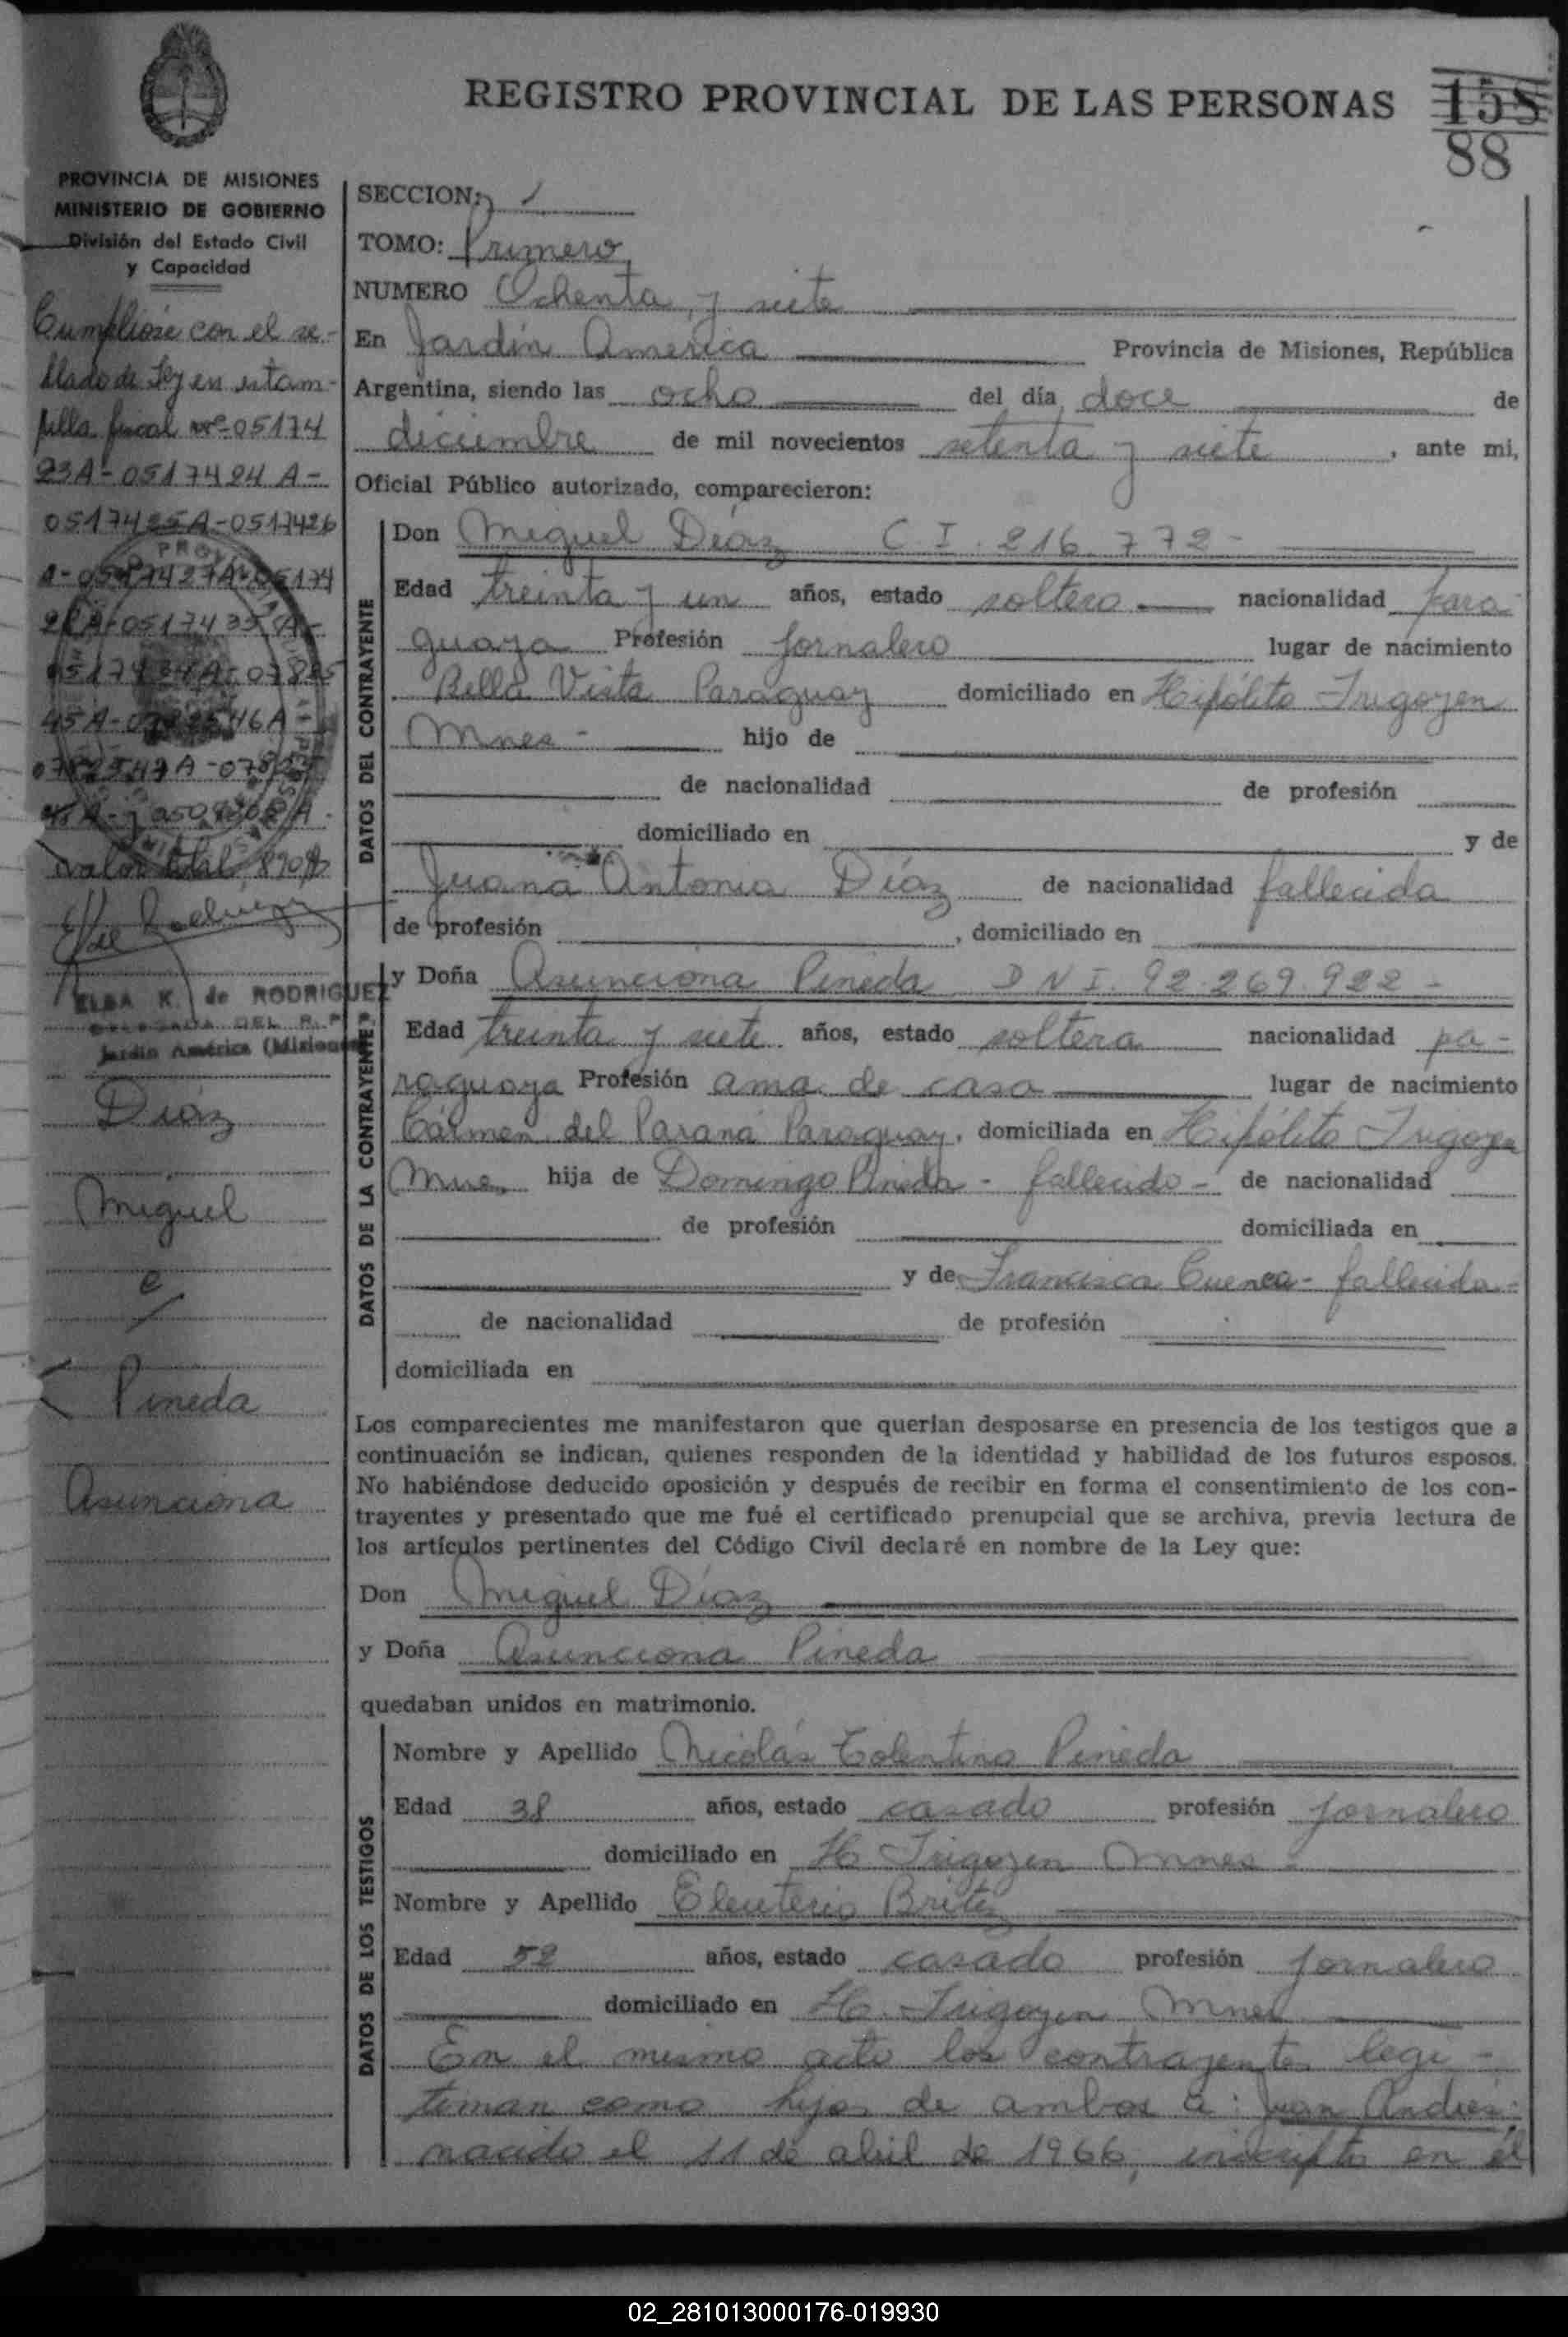 REGISTRO PROVINCIAL DE LAS PERSONAS
158
88
PROVINCIA DE MISIONES
MINISTERIO DE GOBIERNO
División del Estado Civil
y Capacidad
Cumplióse con el se-
llado de Ley en estam-
pilla fiscal nº 05174
23A-0517424A-
0517425A-0517426
A-0517427A-05174
28A-0517435A-
0517434A-07825
45A-0782546A-
0782547A-07825
48A-y
valor total
ELSA K. de RODRIGUEZ
DELEGADA DEL R. P. P.
Jardín América (Misiones)
Díaz
Miguel
c/
Pineda
Asunciona
SECCION: 1
TOMO: Primero
NUMERO Ochenta y siete
En Jardín América Provincia de Misiones, República
Argentina, siendo las ocho del día doce de
diciembre de mil novecientos setenta y siete, ante mi,
Oficial Público autorizado, comparecieron:
DATOS DEL CONTRAYENTE
Don Miguel Díaz C.I. 216.772-
Edad treinta y un años, estado soltero nacionalidad para-
guaya Profesión jornalero lugar de nacimiento
Bella Vista Paraguay domiciliado en Hipólito Irigoyen
Mnes- hijo de
de nacionalidad de profesión
domiciliado en y de
Juana Antonia Díaz de nacionalidad fallecida
de profesión , domiciliado en
DATOS DE LA CONTRAYENTE
y Doña Asunciona Pineda DNI. 92.269.922-
Edad treinta y siete años, estado soltera nacionalidad pa-
raguaya Profesión ama de casa lugar de nacimiento
Cármen del Paraná Paraguay, domiciliada en Hipólito Irigoyen
Mnes, hija de Domingo Pineda - fallecido - de nacionalidad
de profesión domiciliada en
y de Francisca Cuenca - fallecida-
de nacionalidad de profesión
domiciliada en
Los comparecientes me manifestaron que querían desposarse en presencia de los testigos que a
continuación se indican, quienes responden de la identidad y habilidad de los futuros esposos.
No habiéndose deducido oposición y después de recibir en forma el consentimiento de los con-
trayentes y presentado que me fué el certificado prenupcial que se archiva, previa lectura de
los artículos pertinentes del Código Civil declaré en nombre de la Ley que:
Don Miguel Díaz
y Doña Asunciona Pineda
quedaban unidos en matrimonio.
DATOS DE LOS TESTIGOS
Nombre y Apellido Nicolás Tolentino Pineda
Edad 38 años, estado casado profesión jornalero
domiciliado en H. Irigoyen Mnes-
Nombre y Apellido Eleuterio Britez
Edad 52 años, estado casado profesión jornalero
domiciliado en H. Irigoyen Mnes
En el mismo acto los contrayentes legi-
timan como hijos de ambos a: Juan Andrés:
nacido el 11 de abril de 1966, inscripto en el
02_281013000176-019930